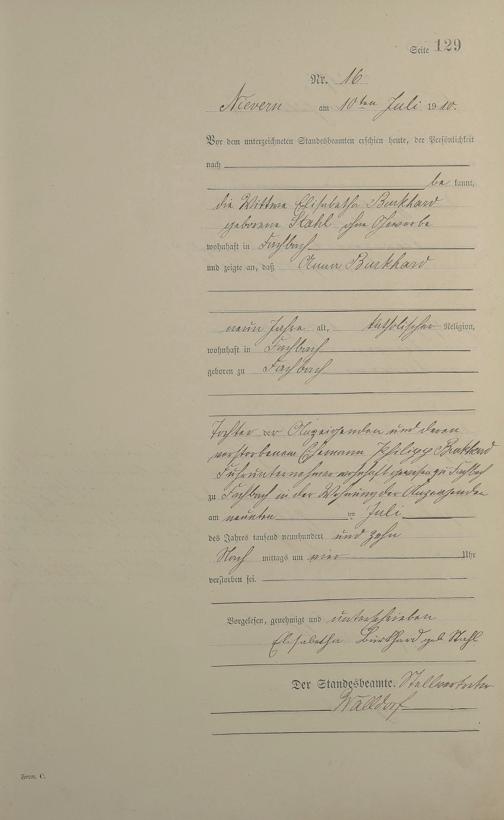 Seite 129
Nr. 16
Nievern am 10ten Juli 1910.
Vor dem unterzeichneten Standesbeamten erschien heute, der Persönlichkeit
nach
be kannt,
die Wittwe Elisabetha Burkhard
geborene Stahl ohne Gewerbe
wohnhaft in Fachbach
und zeigte an, daß Anna Burkhard
neun Jahre alt, katholischer Religion,
wohnhaft in Fachbach
geboren zu Fachbach
Tochter der Anzeigenden und deren
verstorbenem Ehemann Philipp Burkhard
Fuhrunternehmer wohnhaft gewesen zu Fachbach
zu Fachbach in der Wohnung der Anzeigenden
am neunten Juli
des Jahres tausend neunhundert und zehn
Nach mittags um vier Uhr
verstorben sei.
Vorgelesen, genehmigt und unterschrieben
Elisabetha Burkhard geb Stahl
Der Standesbeamte. Stellvertreter
Walldorf
Form. C.